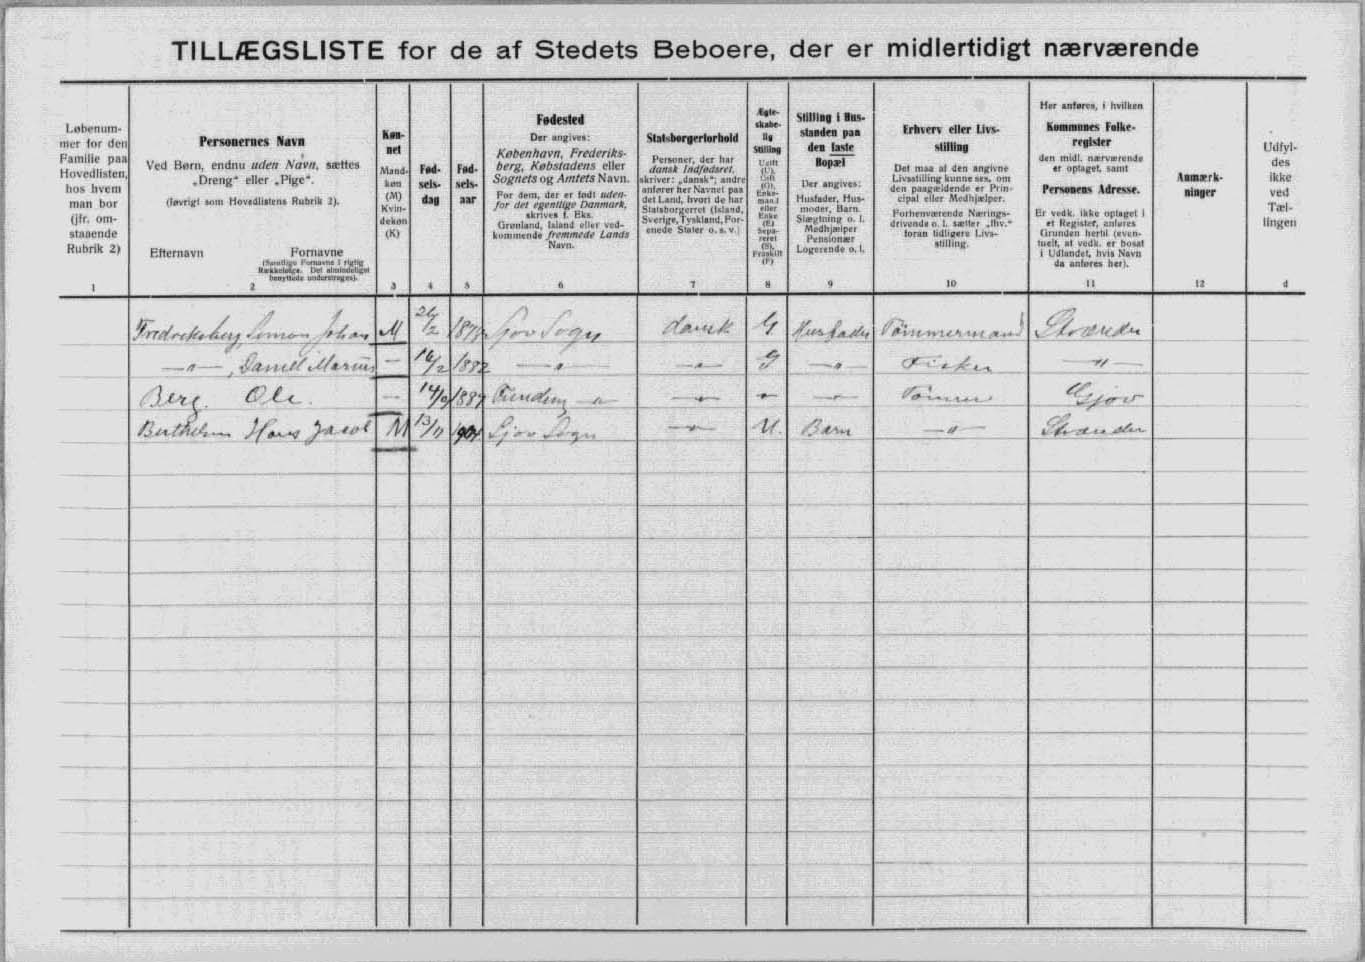 TILLÆGSLISTE for de af Stedets Beboere, der er midlertidigt nærværende
Løbenum-
mer for den
Familie paa
Hovedlisten,
hos hvem
man bor
(jfr. om-
staaende
Rubrik 2)
1
Personernes Navn
Ved Børn, endnu uden Navn, sættes
„Dreng“ eller „Pige“.
(Iøvrigt som Hovedlistens Rubrik 2).
Efternavn Fornavne
(Samtlige Fornavne i rigtig
Rækkefølge. Det almindeligst
benyttede understreges).
2
Køn-
net
Mand-
køn
(M)
Kvin-
dekøn
(K)
3
Fød-
sels-
dag
4
Fød-
sels-
aar
5
Fødested
Der angives:
København, Frederiks-
berg, Købstadens eller
Sognets og Amtets Navn.
For dem, der er født uden-
for det egentlige Danmark,
skrives f. Eks.
Grønland, Island eller ved-
kommende fremmede Lands
Navn.
6
Statsborgerforhold
Personer, der har
dansk Indfødsret,
skriver: „dansk“; andre
anfører her Navnet paa
det Land, hvori de har
Statsborgerret (Island,
Sverige, Tyskland, For-
enede Stater o. s. v.)
7
Ægte-
skabe-
lig
Stilling
Ugift
(U),
Gift
(G),
Enke-
mand
eller
Enke
(E)
Sepa-
reret
(S),
Fraskilt
(F)
8
Stilling i Hus-
standen paa
den faste
Bopæl
Der angives:
Husfader, Hus-
moder, Barn,
Slægtning o. l.
Medhjælper
Pensionær
Logerende o. l.
9
Erhverv eller Livs-
stilling
Det maa af den angivne
Livsstilling kunne ses, om
den paagældende er Prin-
cipal eller Medhjælper.
Forhenværende Nærings-
drivende o. l. sætter „fhv.“
foran tidligere Livs-
stilling.
10
Her anføres, i hvilken
Kommunes Folke-
register
den midl. nærværende
er optaget, samt
Personens Adresse.
Er vedk. ikke optaget i
et Register, anføres
Grunden hertil (even-
tuelt, at vedk. er bosat
i Udlandet, hvis Navn
da anføres her).
11
Anmærk-
ninger
12
Udfyl-
des
ikke
ved
Tæl-
lingen
d
Fredriksberg, Simon Johan M 26/2 Gjov Sogn dansk G Husfader Tømmermand Strænder
—„—, Daniel Marius — 16/2 1882 —„— —„— G —„— Fisker —„—
Berg. Ole. — 1887 Funding —„— —„— —„— Tømrer Gjov
Berthelsen Hans Jacob M 13/11 1904 Gjov Sogn —„— U. Barn —„— Strænder